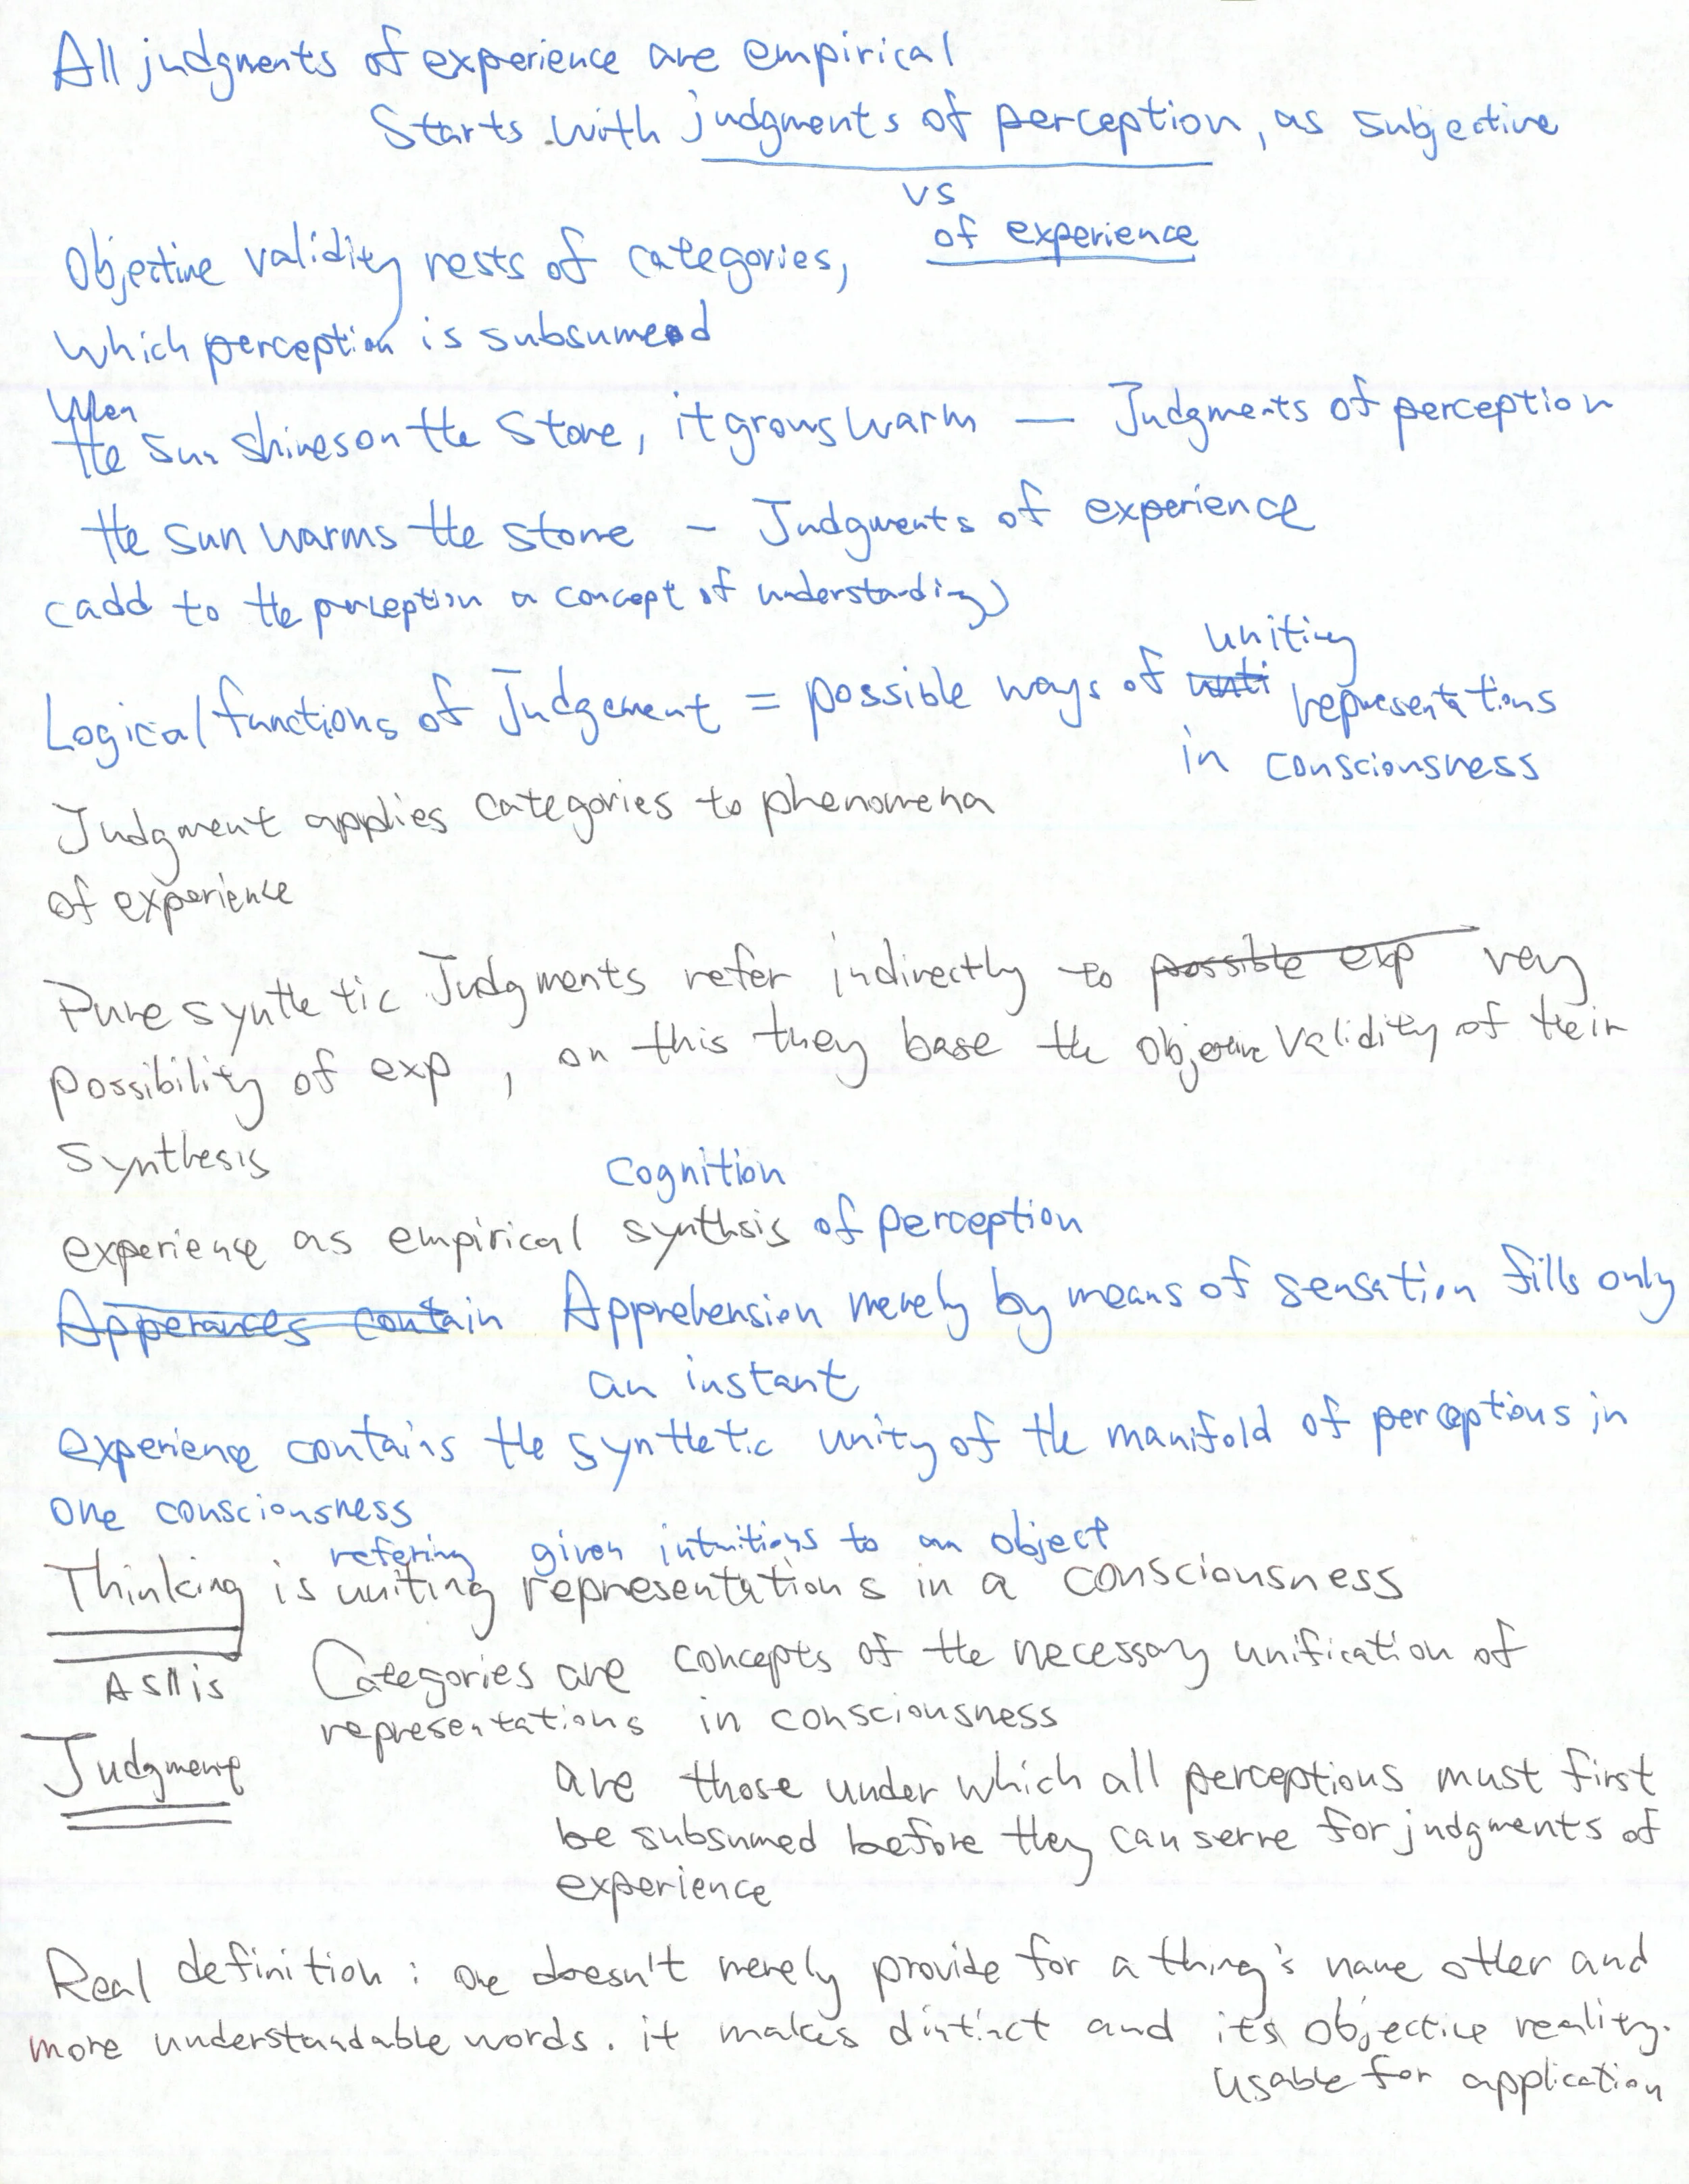 All judgments of experience are empirical
Starts with judgments of perception, as subjective
vs
of experience
Objective validity rests of categories,
which perception is subsumed
When
the sun shines on the stone, it grows warm — Judgments of perception
the sun warms the stone - Judgments of experience
(add to the perception a concept of understanding)
uniting
Logical functions of Judgement = possible ways of unti representations
in consciousness
Judgment applies categories to phenomena
of experience
Pure synthetic Judgments refer indirectly to possible exp very
possibility of exp, on this they base the objective validity of their
synthesis
Cognition
experience as empirical synthsis of perception
Apperances contain Apprehension merely by means of sensation fills only
an instant
experience contains the synthetic unity of the manifold of perceptions in
one consciousness
refering given intuitions to an object
Thinking is uniting representations in a consciousness
Categories are concepts of the necessary unification of
As 11 is
representations in consciousness
Judgment
are those under which all perceptions must first
be subsumed before they can serve for judgments of
experience
Real definition: one doesn't merely provide for a thing's name other and
more understandable words. it makes distinct and its objective reality.
usable for application